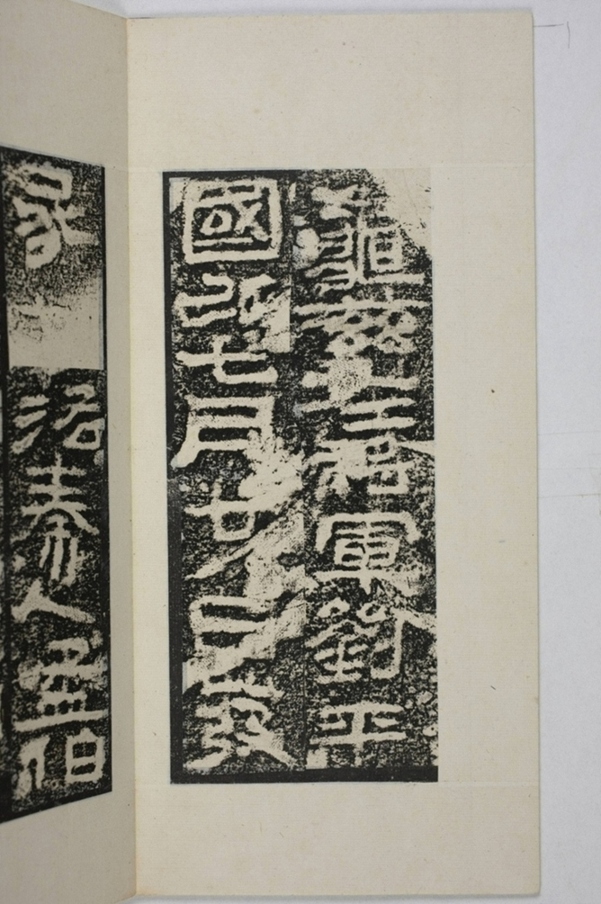 龜茲左將軍劉平
國以七月廿六日發
家秦人孟伯